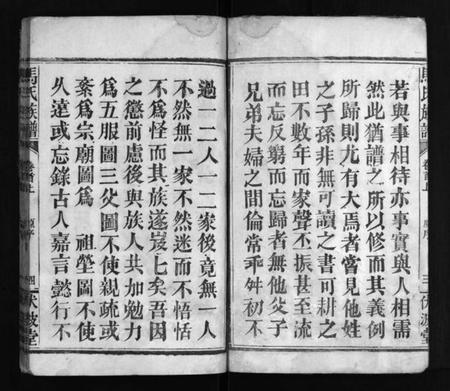 馬氏族譜
卷首上
原序
三
伏波堂
若與事相待亦事實與人相需
然此猶譜之所以修而其義例
所歸則尤有大焉者嘗見他姓
之子孫非無可讀之書可耕之
田不數年而家聲不振甚至流
而忘反窮而忘歸者無他父子
兄弟夫婦之間倫常乖舛初不
過一二人一二家後竟無一人
不然無一家不然迷而不悟恬
不爲怪而其族遂岌岌乎殆矣吾因
之懲前慮後與族人共加勉力
爲五服圖三父圖不使親疏或
紊爲宗廟圖爲 祖塋圖不使
久遠或忘錄古人嘉言懿行不
馬氏族譜
卷首上
原序
四
伏波堂